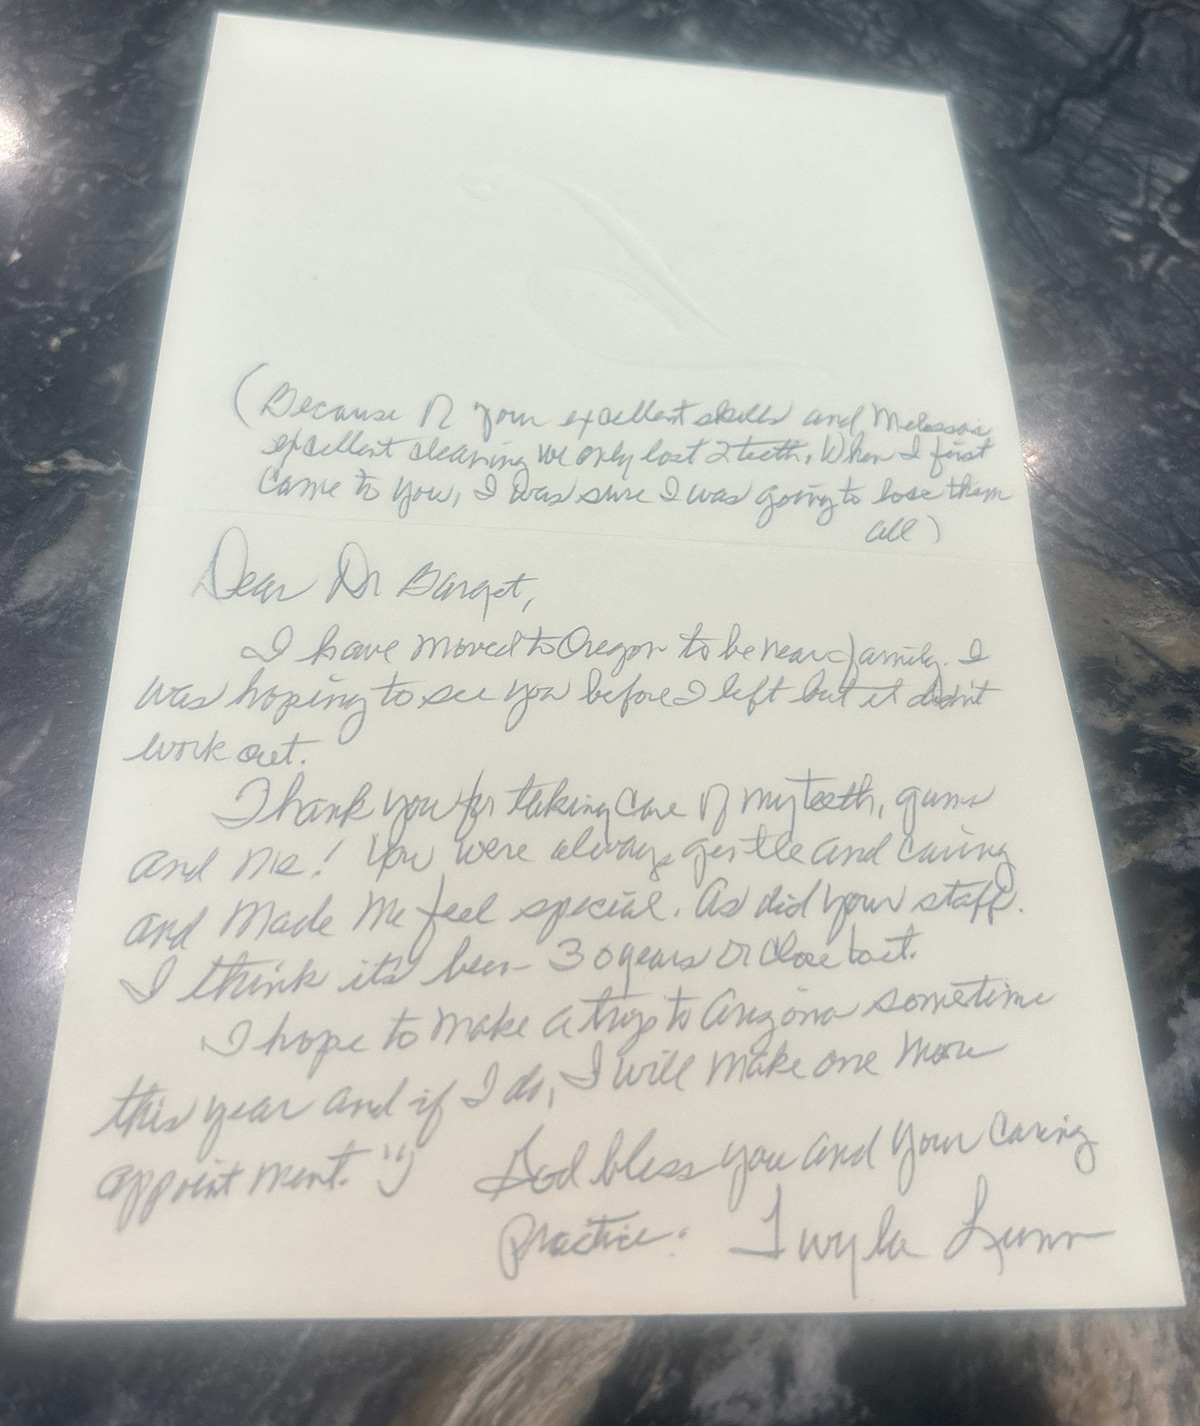 (Because of your excellent skills and Melessa's
excellent cleaning we only lost 2 teeth. When I first
came to you, I was sure I was going to lose them
all)
Dear Dr
I have moved to Oregon to be near family. I
was hoping to see you before I left but it didn't
work out.
Thank you for taking care of my teeth, gums
and me! You were always gentle and caring
and made me feel special. As did your staff.
I think it's been 30 years or close to it.
I hope to make a trip to Arizona sometime
this year and if I do, I will make one more
appointment. :)
God bless you and your caring
practice.
Twyla Lunn